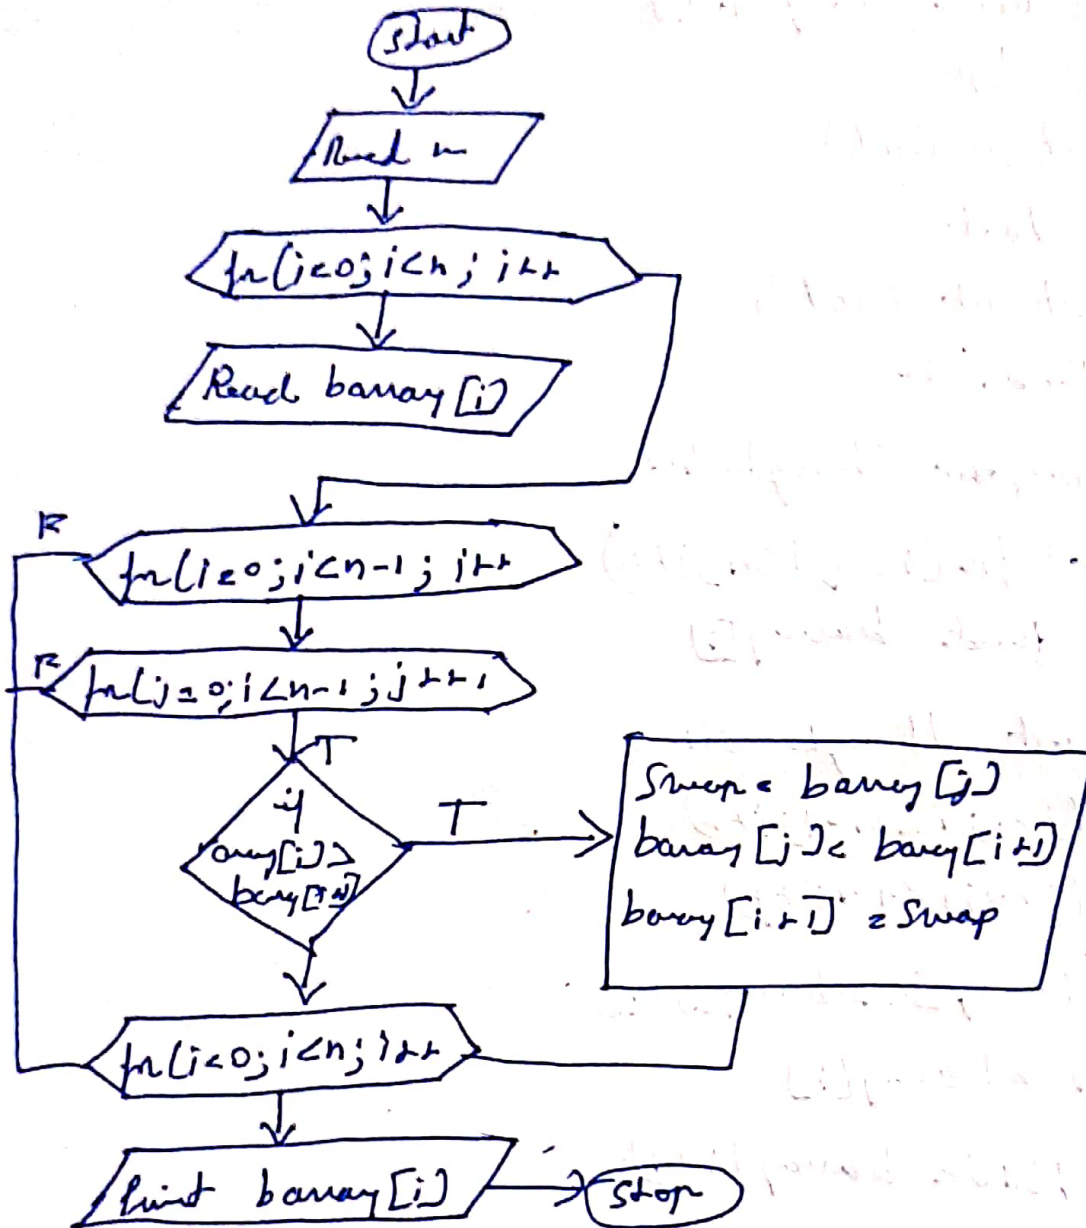 Start
Read n
for(i=0; i<n; i++
Read barray[i]
F
for(i=0; i<n-1; i++
F
for(j=0; i<n-1; j++
T
if
array[i]>
barray[i+1]
T
Swap = barray[j]
barray[j] = barray[i+1]
barray[i+1] = Swap
for(i=0; i<n; i++
Print barray[i]
Stop